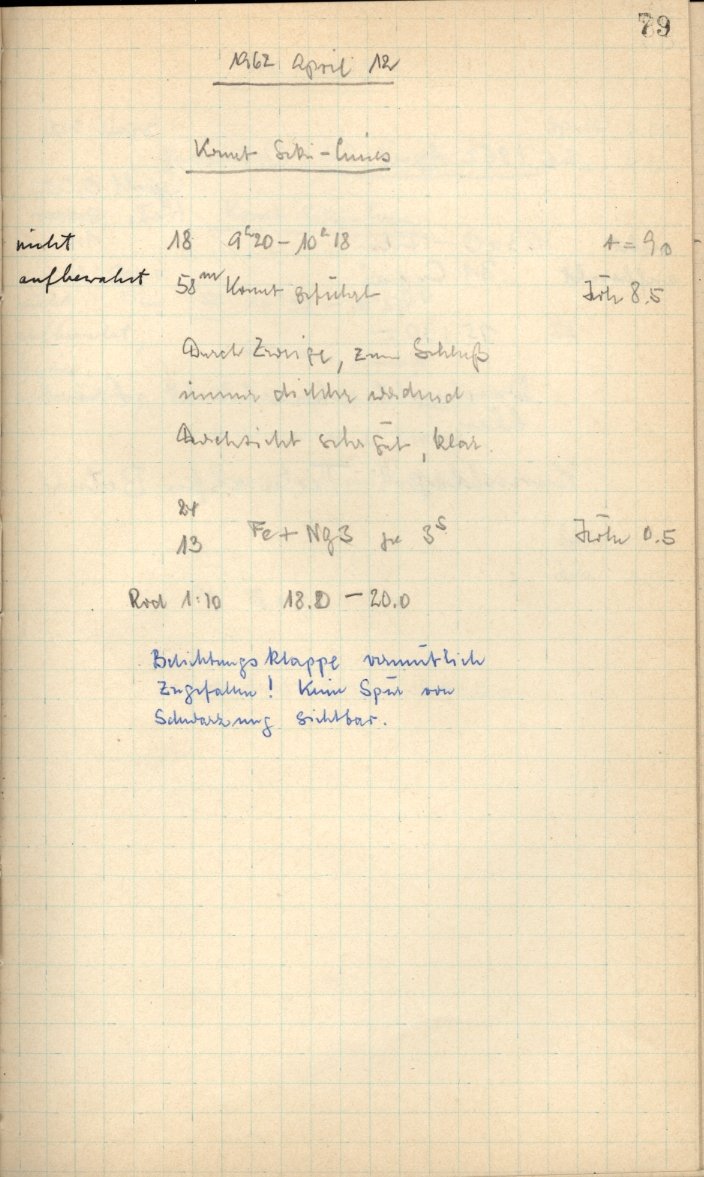 79
1962 April 12
Komet Seki-Lines
nicht 18 9h20 - 10h18 t = 9,0
aufbewahrt 58m Komet geführt Jöh 8.5
Durch Zweige, zum Schluß
immer dichter werdend
Durchsicht sehr gut, klar.
13 Fe + Ng3 je 3s 0.5
Rod 1:10 18.0 - 20.0
Belichtungsklappe vermutlich
zugefallen! Keine Spur von
Schwärzung sichtbar.